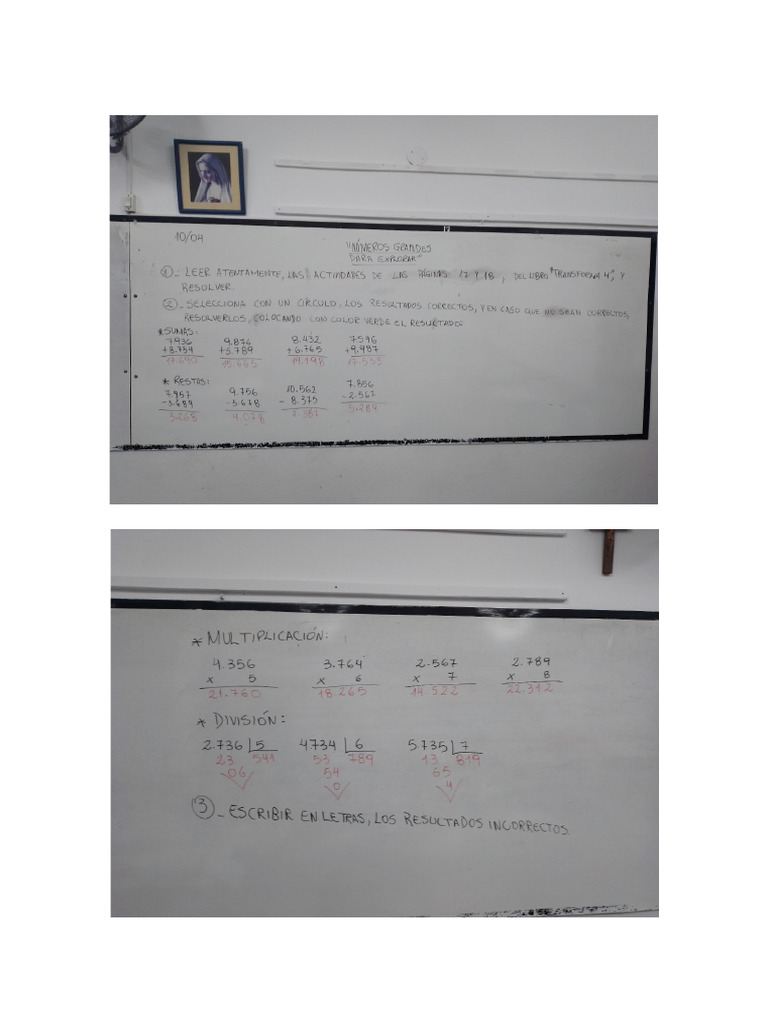 10/04
"NÚMEROS GRANDES
PARA EXPLORAR"
1_ LEER ATENTAMENTE, LAS ACTIVIDADES DE LAS PÁGINAS: 17 Y 18, DEL LIBRO "TRANSFORMA 4", Y
RESOLVER.
2_ SELECCIONA CON UN CÍRCULO, LOS RESULTADOS CORRECTOS, Y EN CASO QUE NO SEAN CORRECTOS,
RESOLVERLOS, COLOCANDO CON COLOR VERDE EL RESULTADO
* SUMAS:
7936 9.876 8.432 7596
+8.754 +5.789 +6.765 +9.987
15.665 14.198 17.553
* RESTAS:
7957 9.756 10.562 7.856
-5.689 -5.678 - 8.375 -2.567
3.268 4.078 5.289
* MULTIPLICACIÓN:
4.356 3.764 2.567 2.789
x 5 x 6 x 7 x 8
21.760 18.265 14.522 22.312
* DIVISIÓN:
2.736 5 4734 6 5.735 7
23 541 53 789 13 819
06 54 65
0 4
3_ ESCRIBIR EN LETRAS, LOS RESULTADOS INCORRECTOS.